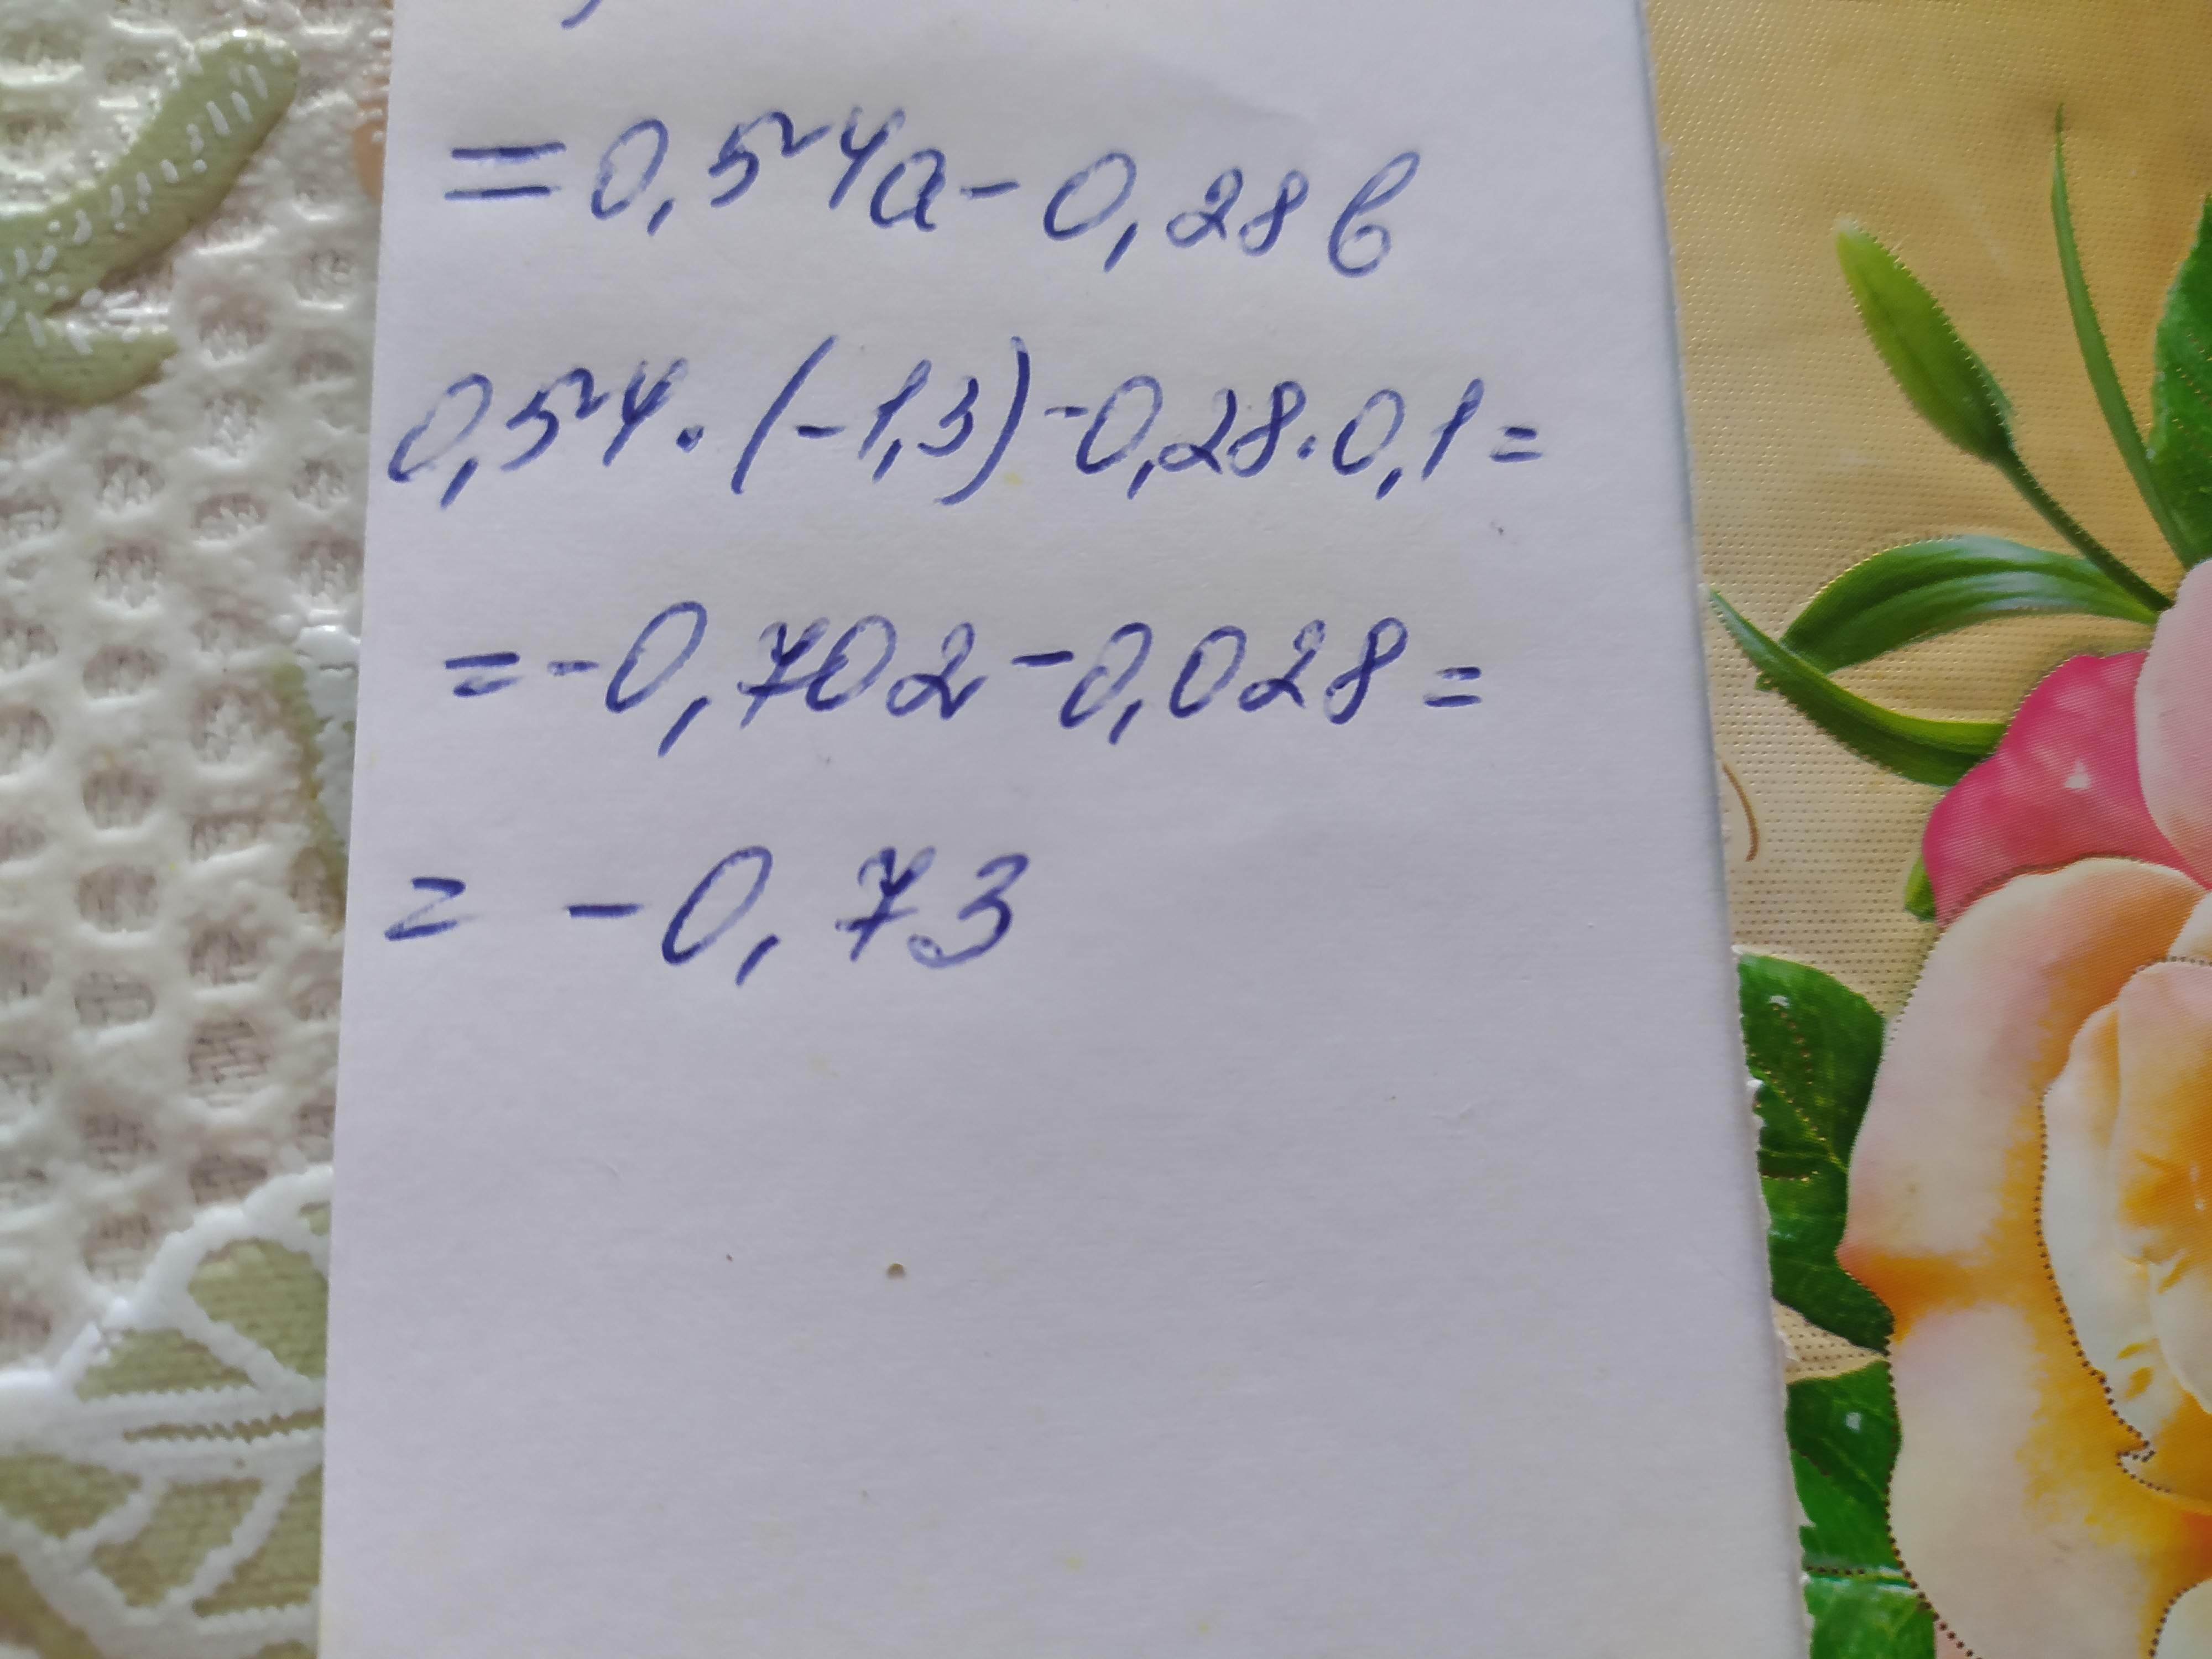 =0,54a-0,28b
0,54·(-1,3)-0,28·0,1=
=-0,702-0,028=
= -0,73